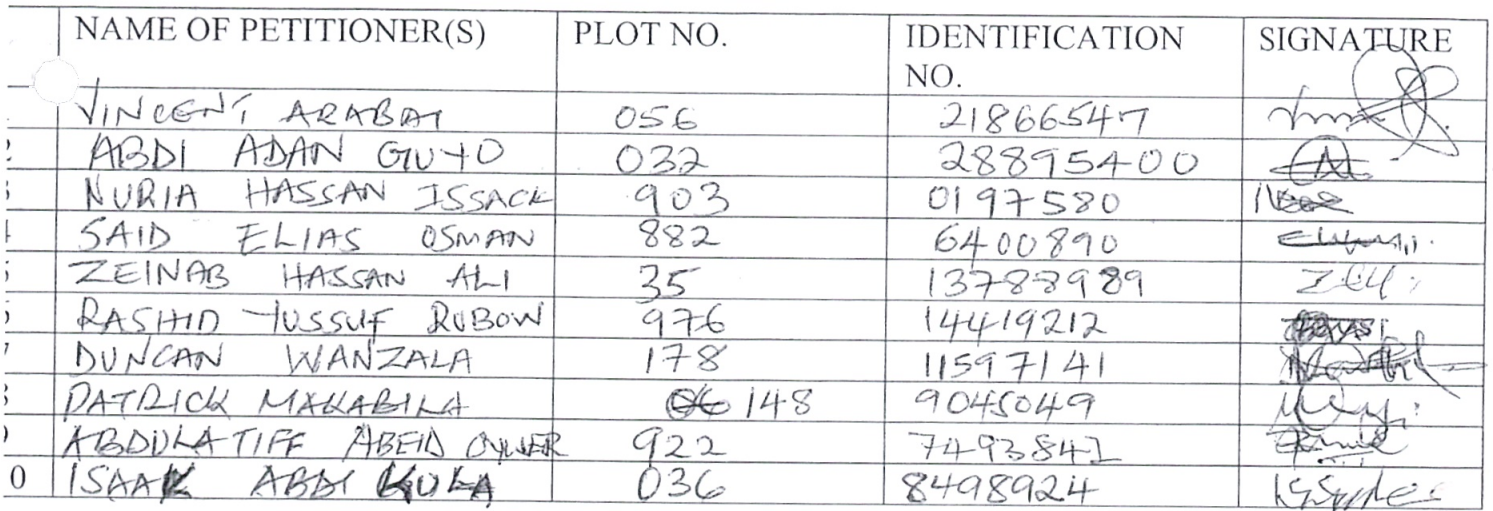 NAME OF PETITIONER(S) PLOT NO. IDENTIFICATION NO. SIGNATURE
VINCENT ARABAT 056 21866547
2 ABDI ADAN GUYO 032 28895400
NURIA HASSAN ISSACK 903 0197580
SAID ELIAS OSMAN 882 6400890
ZEINAB HASSAN ALI 35 13788989
RASHID YUSSUF RUBOW 976 14419212
7 DUNCAN WANZALA 178 11597141
PATRICK MAKABILA 148 9045049
ABDULATIFF ABEID 922 7493841
0 ISAAK ABDI KULA 036 8498924